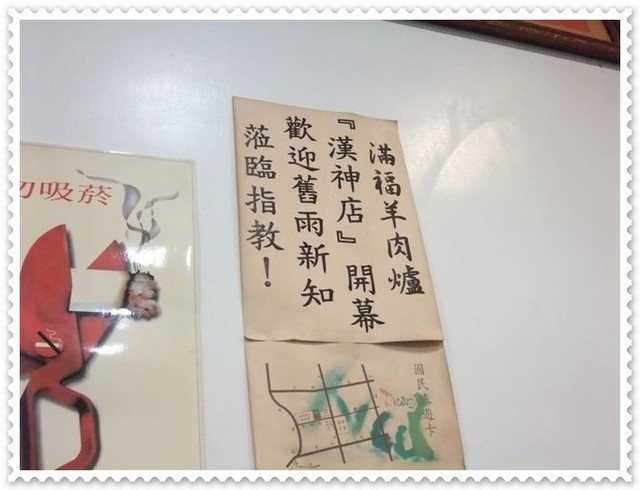 滿福羊肉爐
『漢神店』開幕
歡迎舊雨新知
蒞臨指教！
勿吸菸
國民旅遊卡